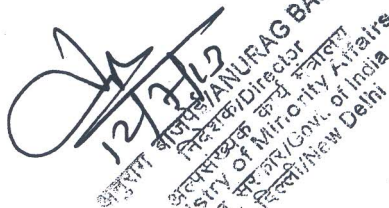 12/7/17
अनुराग बाजपेई/ANURAG BA
निदेशक/Director
अल्पसंख्यक कार्य मंत्रालय
istry of Minority Affairs
सरकार/Govt. of India
दिल्ली/New Delhi